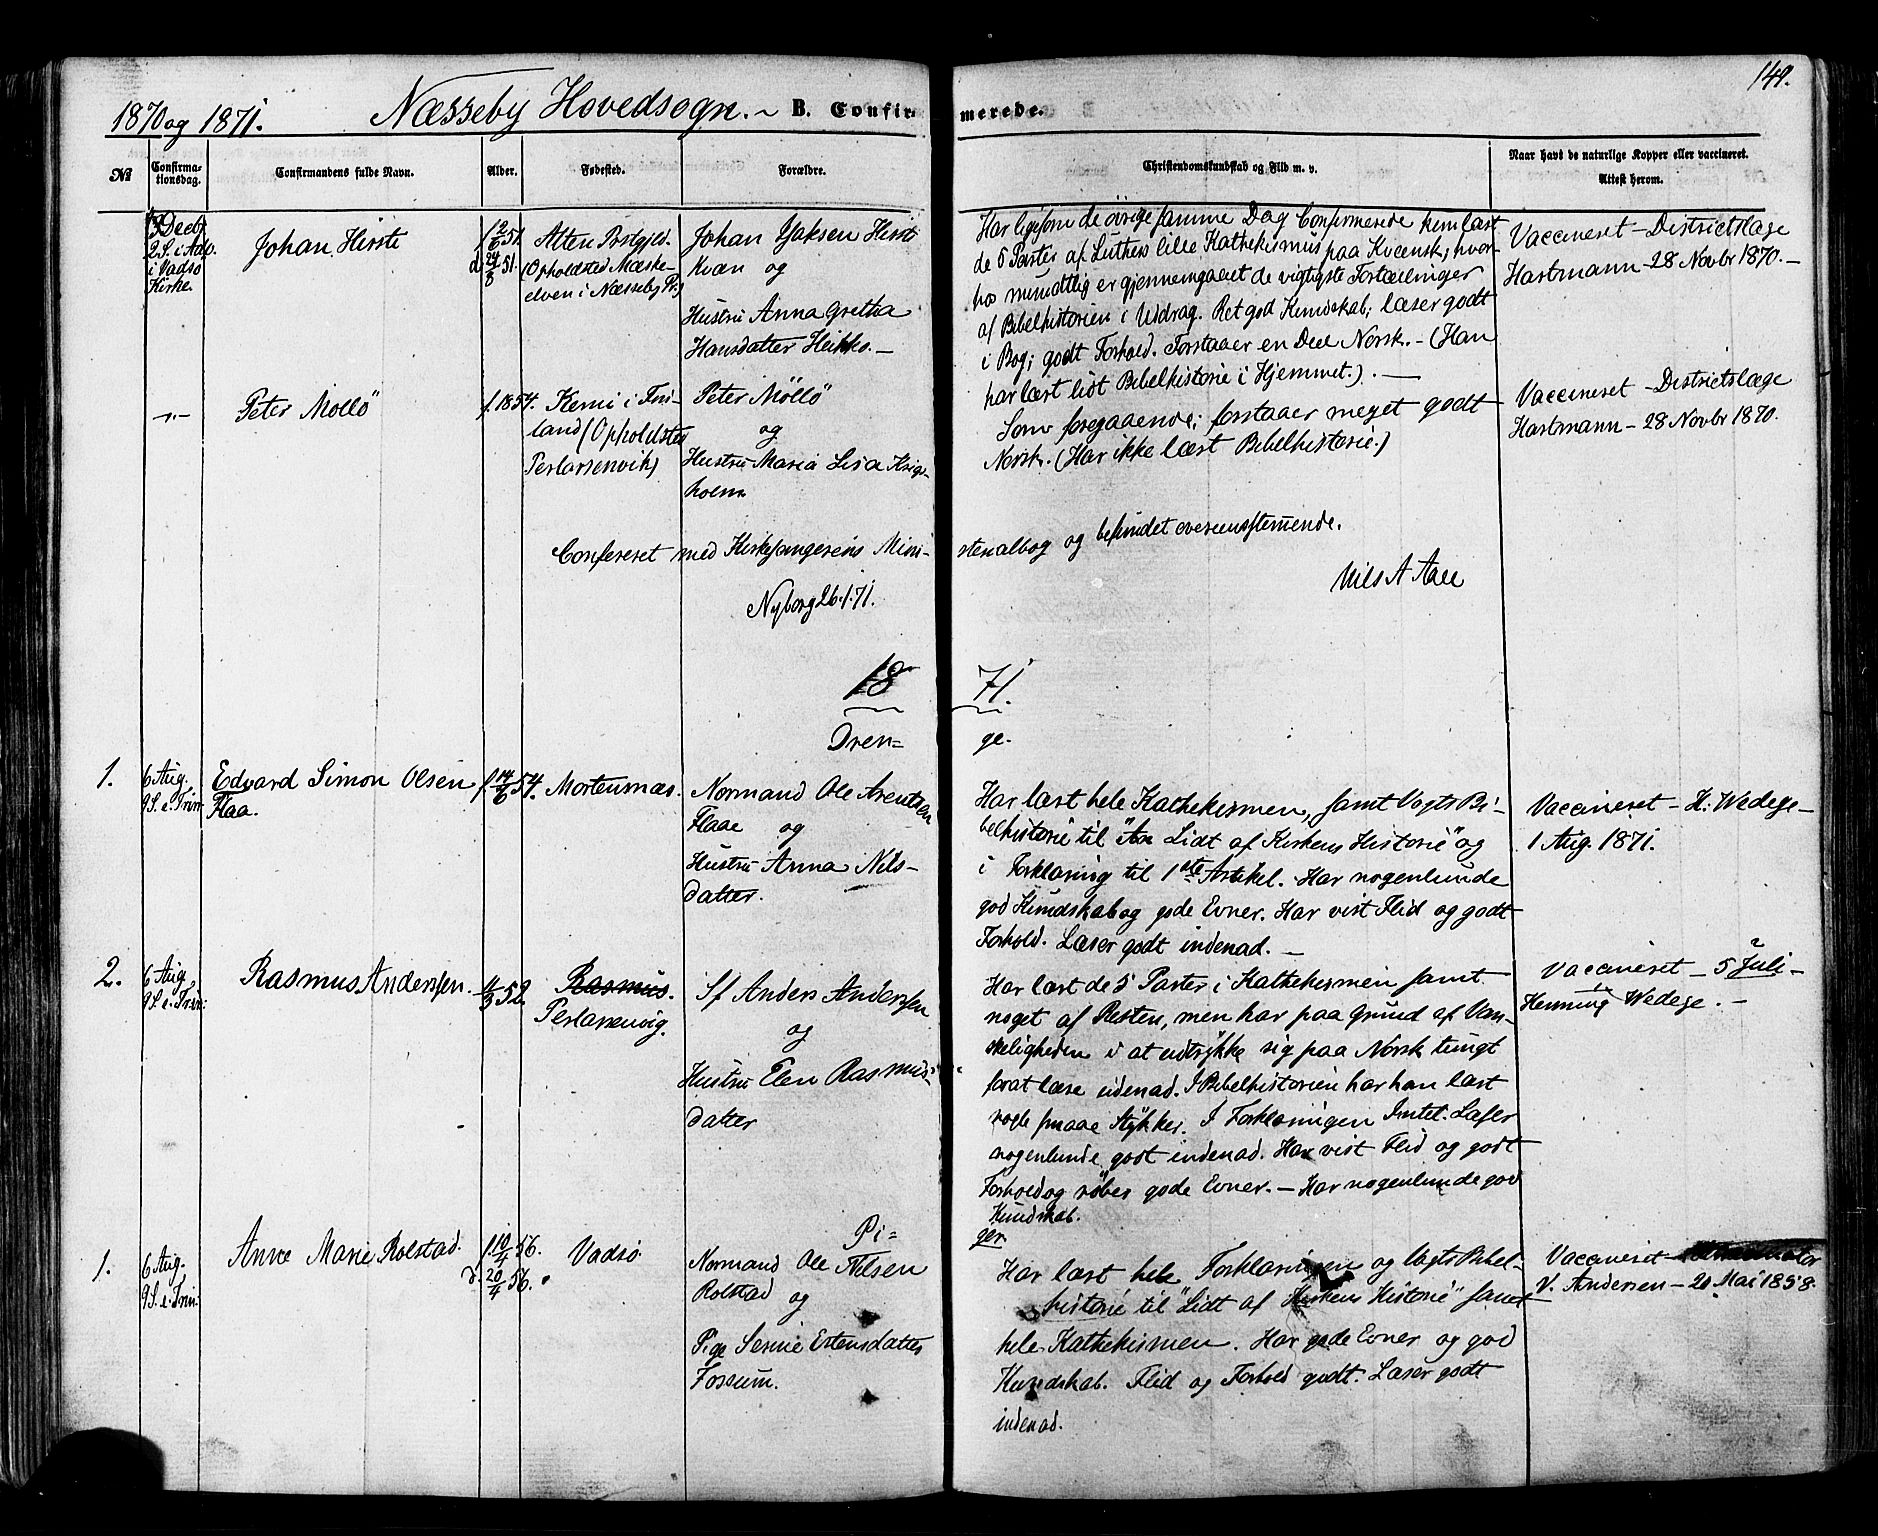 149.
1870 og 1871. Næsseby Hovedsogn. ~ B. Confirmerede.
№ Confirmationsdag. Confirmandens fulde Navn. Alder. Fødested. Forældre. Christendomskundskab og Flid m. v. Naar havd de naturlige Kopper eller vaccineret. Attest herom.
Decb.
2 S. i Adv.
i Vadsø
Kirke.
Johan Hirsti
f. 2/6 51.
d. 24/8 51.
Alten Prstgjld.
(Opholdsted Mæske-
elven i Næsseby Pr.)
Johan Isaksen Hirsti
Kvæn og
Hustru Anna Gretha
Hansdatter Heikko. —
Har ligesom de øvrige samme Dag Confirmerede kun læst
de 5 Parter af Luthers lille Kathekismus paa Kvænsk; hvor-
hos mundtlig er gjennemgaaet de vigtigste Fortællinger
af Bibelhistorien i Udrag. Ret god Kundskab; læser godt
i Bog; godt Forhold. Forstaaer en Deel Norsk. — (Han
har læst lidt Bibelhistorie i Hjemmet.). —
Vaccineret — Districtslæge
Hartmann — 28 Novbr 1870. —
—"—
Peter Møllö
f. 1854.
Kemi i Fin-
land (Opholdsted
Perlarsenvik)
Peter Möllö
og
Hustru Maria Lisa Krigs-
holm
Som foregaaende; forstaaer meget godt
Norsk. (Har ikke læst Bibelhistorie.)
Vaccineret — Districtslæge
Hartmann — 28 Novbr 1870.
Confereret med Kirkesangerens Ministerialbog og befundet overeensstemmende.
Nyborg 26.1.71.
Nils A Aall
1871.
Drenge.
1.
6 Aug.
9 S. e. Trin.
Edvard Simon Olsen
Flaa.
f. 14/6 54.
Mortensnæs.
Normand Ole Arentsen
Flaae og
Hustru Anna Nils-
datter.
Har læst hele Kathekismen, samt Vogts Bi-
belhistorie til "Lidt af Kirkens Historie" og
i Forklaring til 1ste Artikel. Har nogenlunde
god Kundskab og gode Evner. Har vist Flid og godt
Forhold. Læser godt indenad. —
Vaccineret — H. Wedege —
1 Aug. 1871.
2.
6 Aug.
9 S. e. Trin.
Rasmus Anderssen.
11/3 52.
Rasmus.
Perlarsenvig.
Sf Anders Anderssen
og
Hustru Elen Rasmus-
datter
Har læst de 5 Parter i Kathekismen samt
noget af Resten, men har paa Grund af Van-
skeligheden i at udtrykke sig paa Norsk tungt
for at læse udenad. I Bibelhistorien har han læst
nogle smaae Stykker. I Forklaringen Intet. Læser
nogenlunde godt indenad. Har vist Flid og godt
Forhold og røber gode Evner. — Har nogenlunde god
Kundskab.
Vaccineret — 5 Juli —
Henning Wedege. —
Piger.
1.
6 Aug.
9 S. e. Trin.
Anne Marie Rolstad.
f. 10/4 56.
d. 20/4 56.
Vadsø.
Normand Ole Nilsen
Rolstad og
Pige Serine Estensdatter
Fossum.
Har læst hele Forklaringen og Vogts Bibel-
historie til "Lidt af Kirkens Historie" samt
hele Kathekismen. Har gode Evner og god
Kundskab. Flid og Forhold godt. Læser godt
indenad.
Vaccineret —
V. Andersen — 20 Mai 1858.